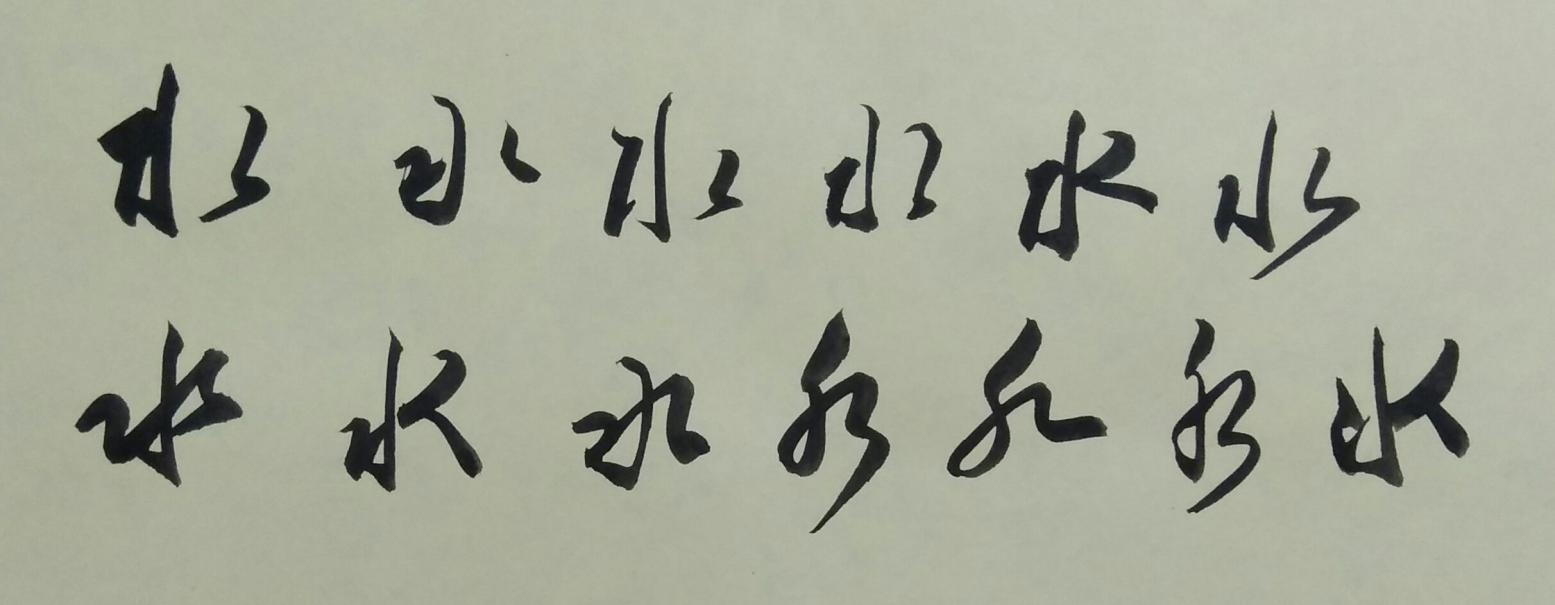 水水水水水水
水水水水水水水